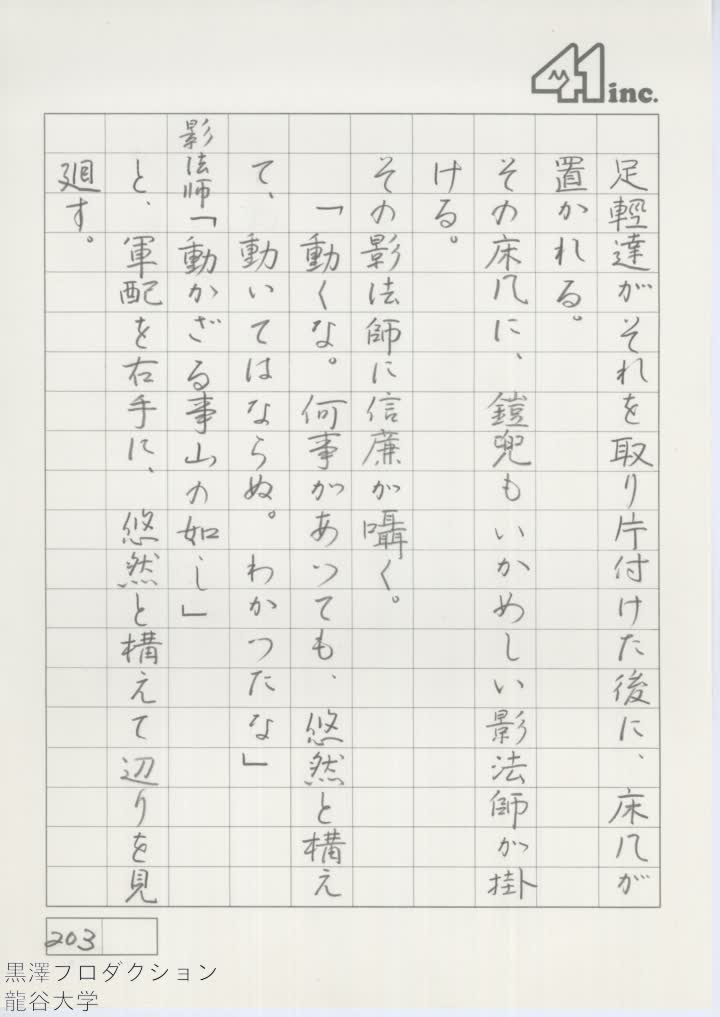 41 inc.
足輕達がそれを取り片付けた後に、床几が
置かれる。
その床几に、鎧兜もいかめしい影法師が掛
ける。
その影法師に信廉が囁く。
「動くな。何事があつても、悠然と構え
て、動いてはならぬ。わかつたな」
影法師「動かざる事山の如し」
と、軍配を右手に、悠然と構えて辺りを見
廻す。
203
黒澤プロダクション
龍谷大学